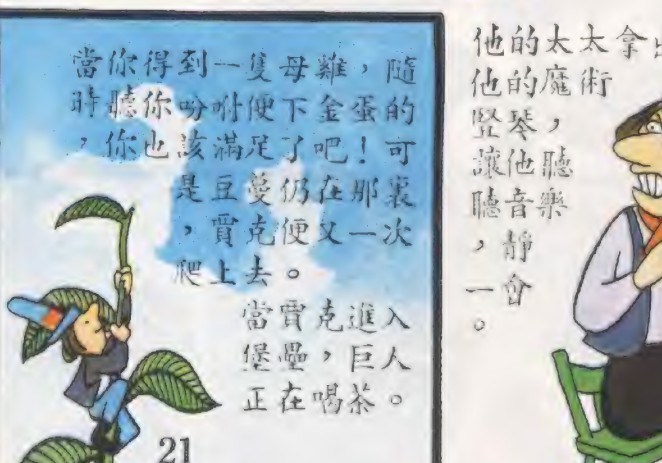 當你得到一隻母雞，隨
時聽你吩咐便下金蛋的
，你也該滿足了吧！可
是豆蔓仍在那裏
，賈克便又一次
爬上去。
當賈克進入
堡壘，巨人
正在喝茶。
21
他的太太拿
他的魔術
豎琴，
讓他聽
聽音樂
，靜
一會
。